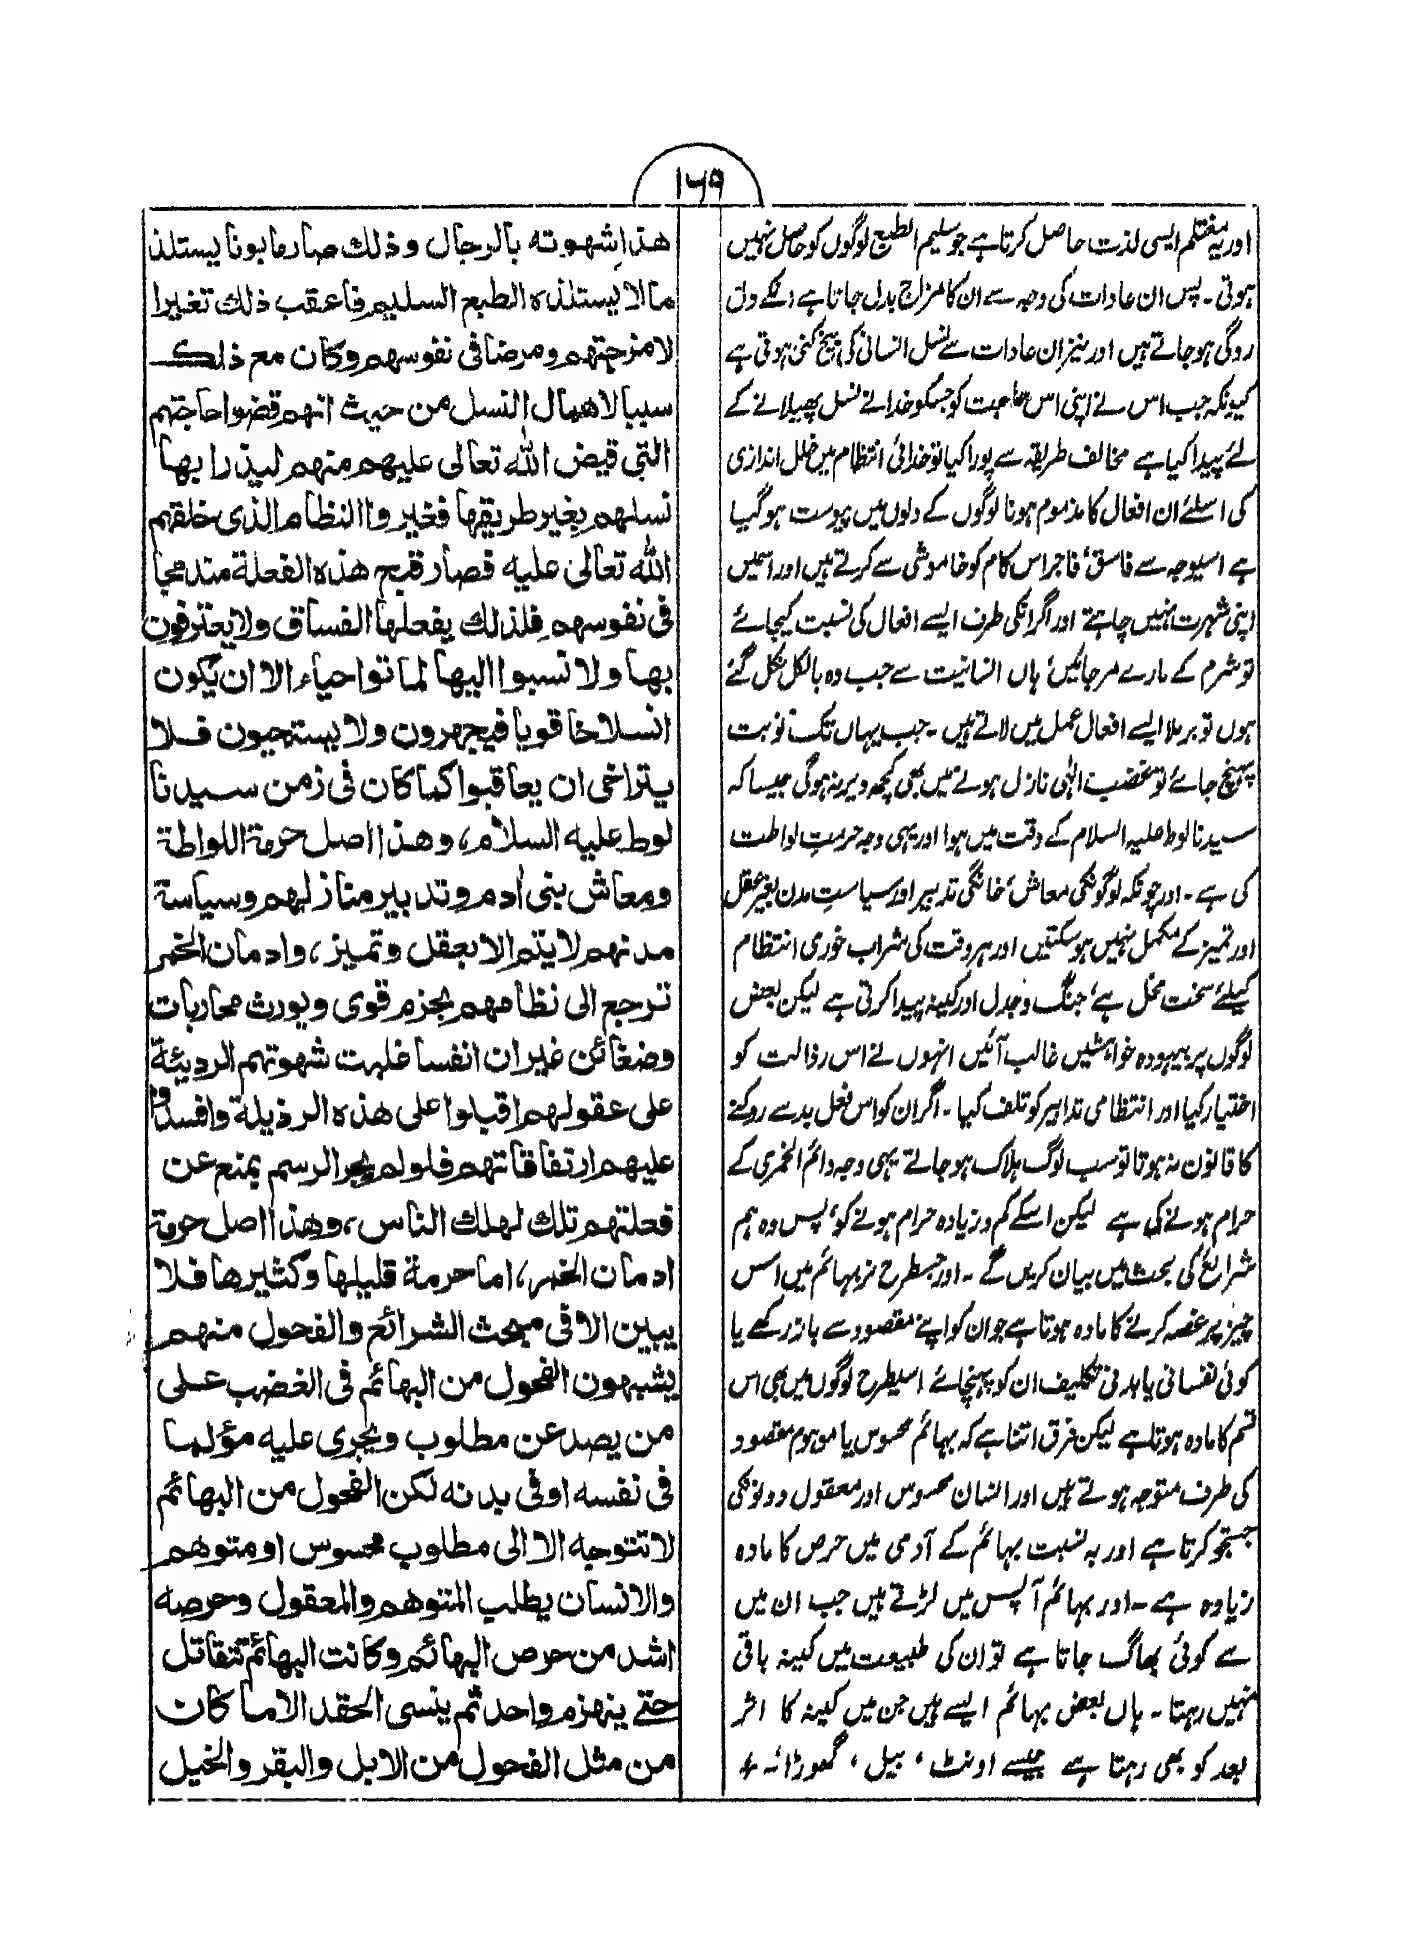 ۱۶۹
اور یہ مغتلم ایسی لذت حاصل کرتا ہے جو سلیم الطبع لوگوں کو حاصل نہیں
ہوتی۔ پس ان عادات کی وجہ سے ان کا مزاج بدل جاتا ہے انکے دل
روگی ہو جاتے ہیں اور نیز ان عادات سے نسل انسانی کی بیخ کنی ہوتی ہے
کیونکہ جب اس نے اپنی اس حاجت کو جسکو خدا نے نسل پھیلانے کے
لئے پیدا کیا ہے مخالف طریقہ سے پورا کیا تو خدائی انتظام میں خلل اندازی
کی اسلئے ان افعال کا مذموم ہونا لوگوں کے دلوں میں پیوست ہو گیا
ہے اسیوجہ سے فاسق، فاجر اس کام کو خاموشی سے کرتے ہیں اور اسمیں
اپنی شہرت نہیں چاہتے اور اگر انکی طرف ایسے افعال کی نسبت کیجائے
تو شرم کے مارے مر جائیں، ہاں انسانیت سے جب وہ بالکل نکل گئے
ہوں تو برملا ایسے افعال عمل میں لاتے ہیں۔ جب یہاں تک نوبت
پہنچ جائے تو غضب الٰہی نازل ہونے میں بھی کچھ دیر نہ ہوگی جیسا کہ
سیدنا لوط علیہ السلام کے وقت میں ہوا اور یہی وجہ حرمتِ لواطت
کی ہے۔ اور چونکہ لوگونکی معاش، خانگی تدبیر اور سیاستِ مدن بغیر عقل
اور تمیز کے مکمل نہیں ہو سکتیں اور ہر وقت کی شراب خوری انتظام
کیلئے سخت مخل ہے، جنگ و جدل اور کینہ پیدا کرتی ہے لیکن بعض
لوگوں پر بیہودہ خواہشیں غالب آئیں انہوں نے اس رذالت کو
اختیار کیا اور انتظامی تدابیر کو تلف کیا۔ اگر ان کو اس فعل بد سے روکنے
کا قانون نہ ہوتا تو سب لوگ ہلاک ہو جاتے یہی وجہ دائم الخمری کے
حرام ہونے کی ہے لیکن اسکے کم و زیادہ حرام ہونے کو، پس وہ ہم
شرائع کی بحث میں بیان کریں گے۔ اور جسطرح نر بہائم میں اس
چیز پر غصہ کرنے کا مادہ ہوتا ہے جو ان کو اپنے مقصود سے باز رکھے یا
کوئی نفسانی یا بدنی تکلیف ان کو پہنچائے اسیطرح لوگوں میں بھی اس
قسم کا مادہ ہوتا ہے لیکن فرق اتنا ہے کہ بہائم محسوس یا موہوم مقصود
کی طرف متوجہ ہوتے ہیں اور انسان محسوس اور معقول دونونکی
جستجو کرتا ہے اور بہ نسبت بہائم کے آدمی میں حرص کا مادہ
زیادہ ہے۔ اور بہائم آپس میں لڑتے ہیں جب ان میں
سے کوئی بھاگ جاتا ہے تو ان کی طبیعت میں کینہ باقی
نہیں رہتا۔ ہاں بعض بہائم ایسے ہیں جن میں کینہ کا اثر
بعد کو بھی رہتا ہے جیسے اونٹ، بیل، گھوڑا نہ
هذا شهوته بالرجال وذلك صار مابونا يستلذ
مالا يستلذه الطبع السليم فاعقب ذلك تغيرا
لامزجتهم ومرضا فى نفوسهم وكان مع ذلك
سببا لاهمال النسل من حيث انهم قضوا حاجتهم
التى قيض الله تعالى عليهم منهم ليذرا بها
نسلهم بغير طريقها فغيروا النظام الذى خلقهم
الله تعالى عليه فصار قبح هذه الفعلة مندمجا
فى نفوسهم فلذلك يفعلها الفساق ولا يعترفون
بها ولا نسبوا اليها لماتوا حياء الا ان يكون
انسلاخا قويا فيجهرون ولا يستحيون فلا
يتراخى ان يعاقبوا كما كان فى زمن سيدنا
لوط عليه السلام، وهذا اصل حرمة اللواطة
ومعاش بنى ادم وتدبير منازلهم وسياسة
مدنهم لا يتم الا بعقل وتميز، وادمان الخمر
ترجع الى نظامهم بخزم قوى ويورث محاربات
وضغائن غير ان انفسا غلبت شهوتهم الرديئة
على عقولهم اقبلوا على هذه الرذيلة وافسدوا
عليهم ارتفاقاتهم فلو لم يجر الرسم بمنع عن
فعلتهم تلك لهلك الناس، وهذا اصل حرمة
ادمان الخمر، اما حرمة قليلها وكثيرها فلا
يبين الا فى مبحث الشرائع والفحول منهم
يشبهون الفحول من البهائم فى الغضب على
من يصد عن مطلوب ويجرى عليه مؤلما
فى نفسه او فى بدنه لكن الفحول من البهائم
لا تتوجه الا الى مطلوب محسوس او متوهم
والانسان يطلب المتوهم والمعقول وحرصه
اشد من حرص البهائم وكانت البهائم تتقاتل
حتے ينهزم واحد ثم ينسى الحقد الا ما كان
من مثل الفحول من الابل والبقر والخيل